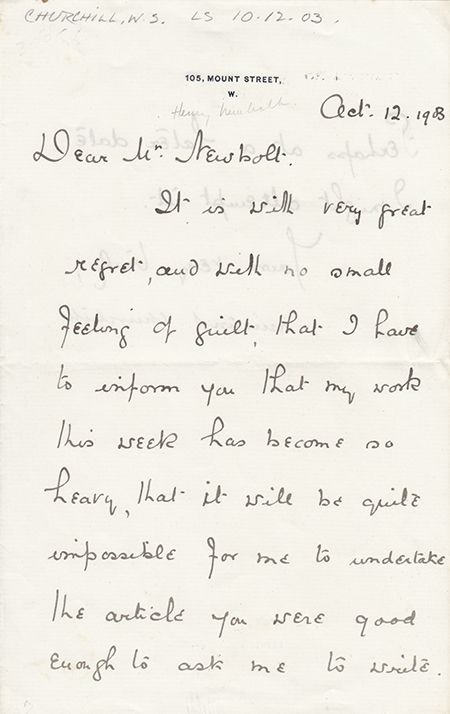 CHURCHILL, W.S. LS 10.12.03.
105, MOUNT STREET,
W.
Henry Newbolt
Oct. 12. 1903
Dear Mr. Newbolt.
It is with very great
regret, and with no small
feeling of guilt, that I have
to inform you that my work
this week has become so
heavy, that it will be quite
impossible for me to undertake
the article you were good
enough to ask me to write.